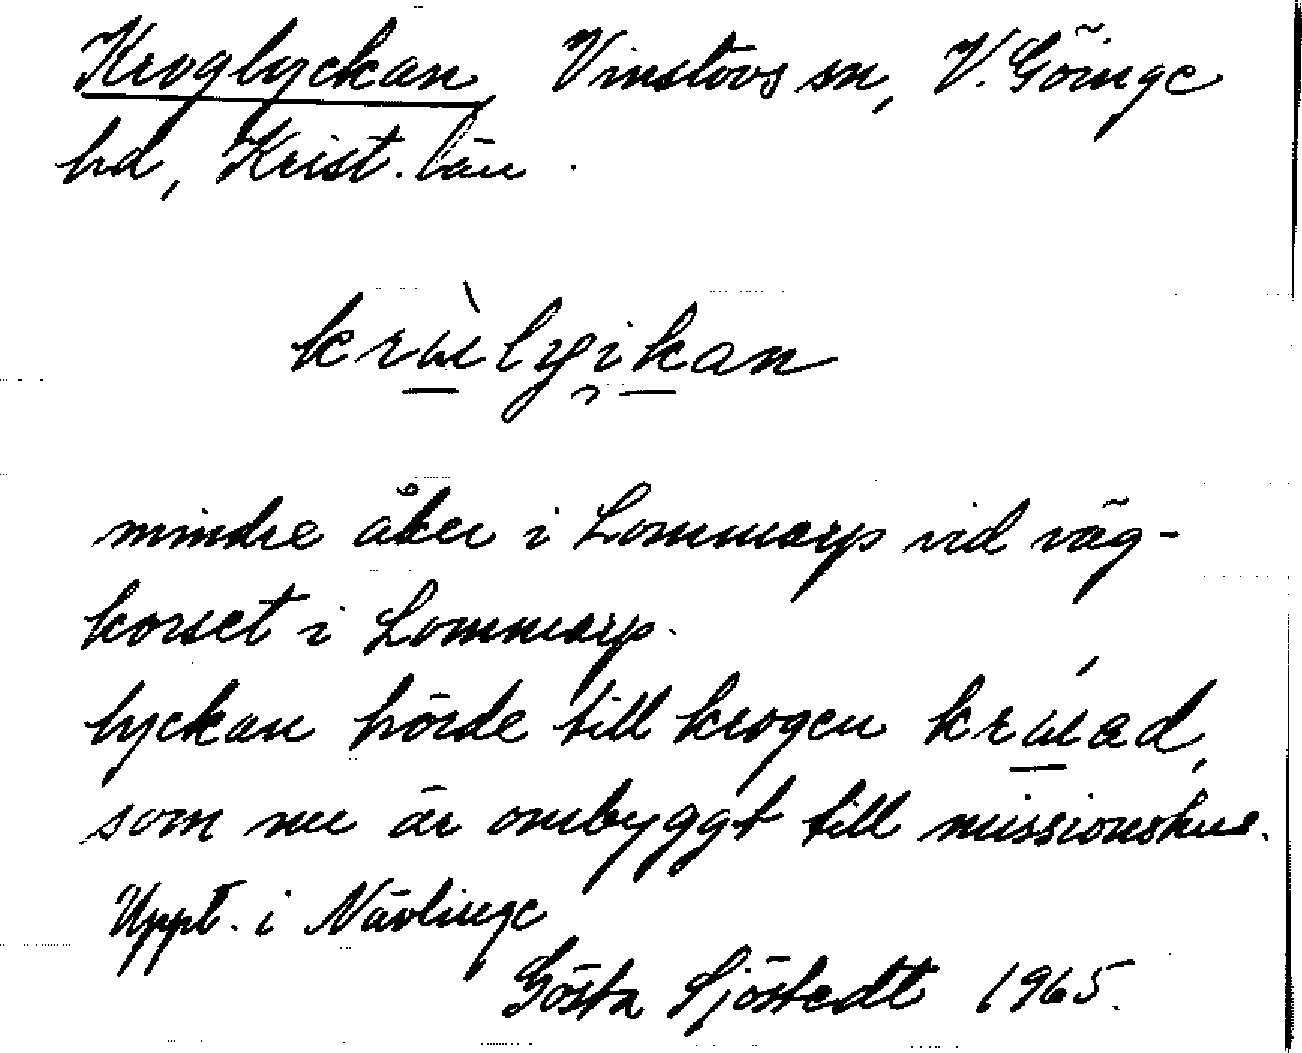 Kroglyckan, Vinslövs sn, V. Göinge
hd, Krist. län.
mindre åker i Lommarp vid väg-
korset i Lommarp.
lyckan hörde till krogen
som nu är ombyggt till missionshus.
Uppt. i Nävlinge
Gösta Sjöstedt 1965.